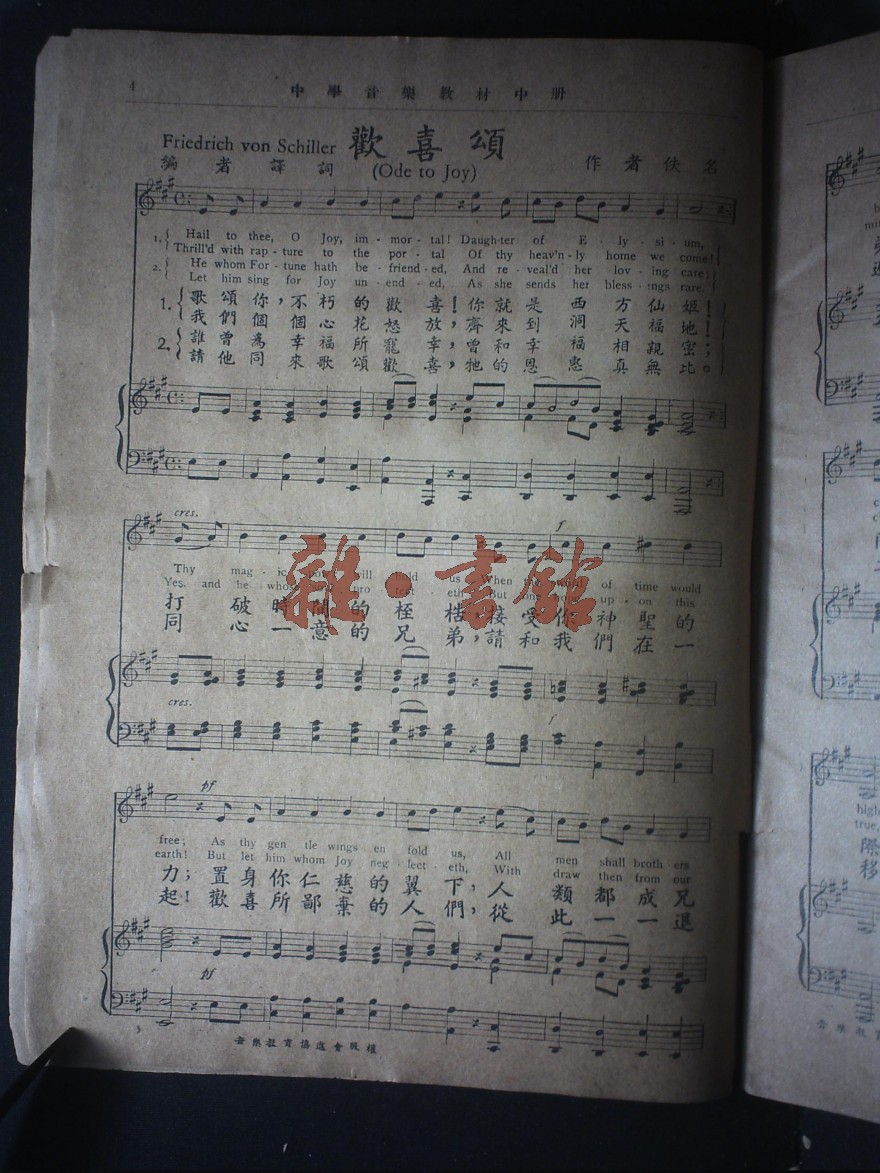 4
中學音樂教材中册
Friedrich von Schiller 歡喜頌
編者譯詞 (Ode to Joy) 作者佚名
1. Hail to thee, O Joy, im - mor - tal! Daugh-ter of E - ly - si - um,
Thrill'd with rap - ture to the por - tal Of thy heav'n-ly home we come!
2. He whom For - tune hath be - friend - ed, And re - veal'd her lov - ing care;
Let him sing for Joy un - end - ed, As she sends her bless - ings rare.
1. 歌頌你，不朽的歡喜！你就是西方仙姬！
我們個個心花怒放，齊來到洞天福地！
2. 誰曾為幸福所寵幸，曾和幸福相親密；
請他同來歌頌歡喜，牠的恩惠真無比。
cres.
f
Thy mag - ic will hold us When the of time would
Yes, and he whose eth But up - on this
打破時間的桎梏，接受你神聖的
同心一意的兄弟，請和我們在一
cres.
f
雜·書館
pf
free; As thy gen tle wings en fold us, All men shall broth - ers
earth! But let him whom Joy neg - lect - eth, With draw then from our
力；置身你仁慈的翼下，人類都成兄
起！歡喜所鄙棄的人們，從此一一退
pf
音樂教育協進會版權
high
true,
際
移